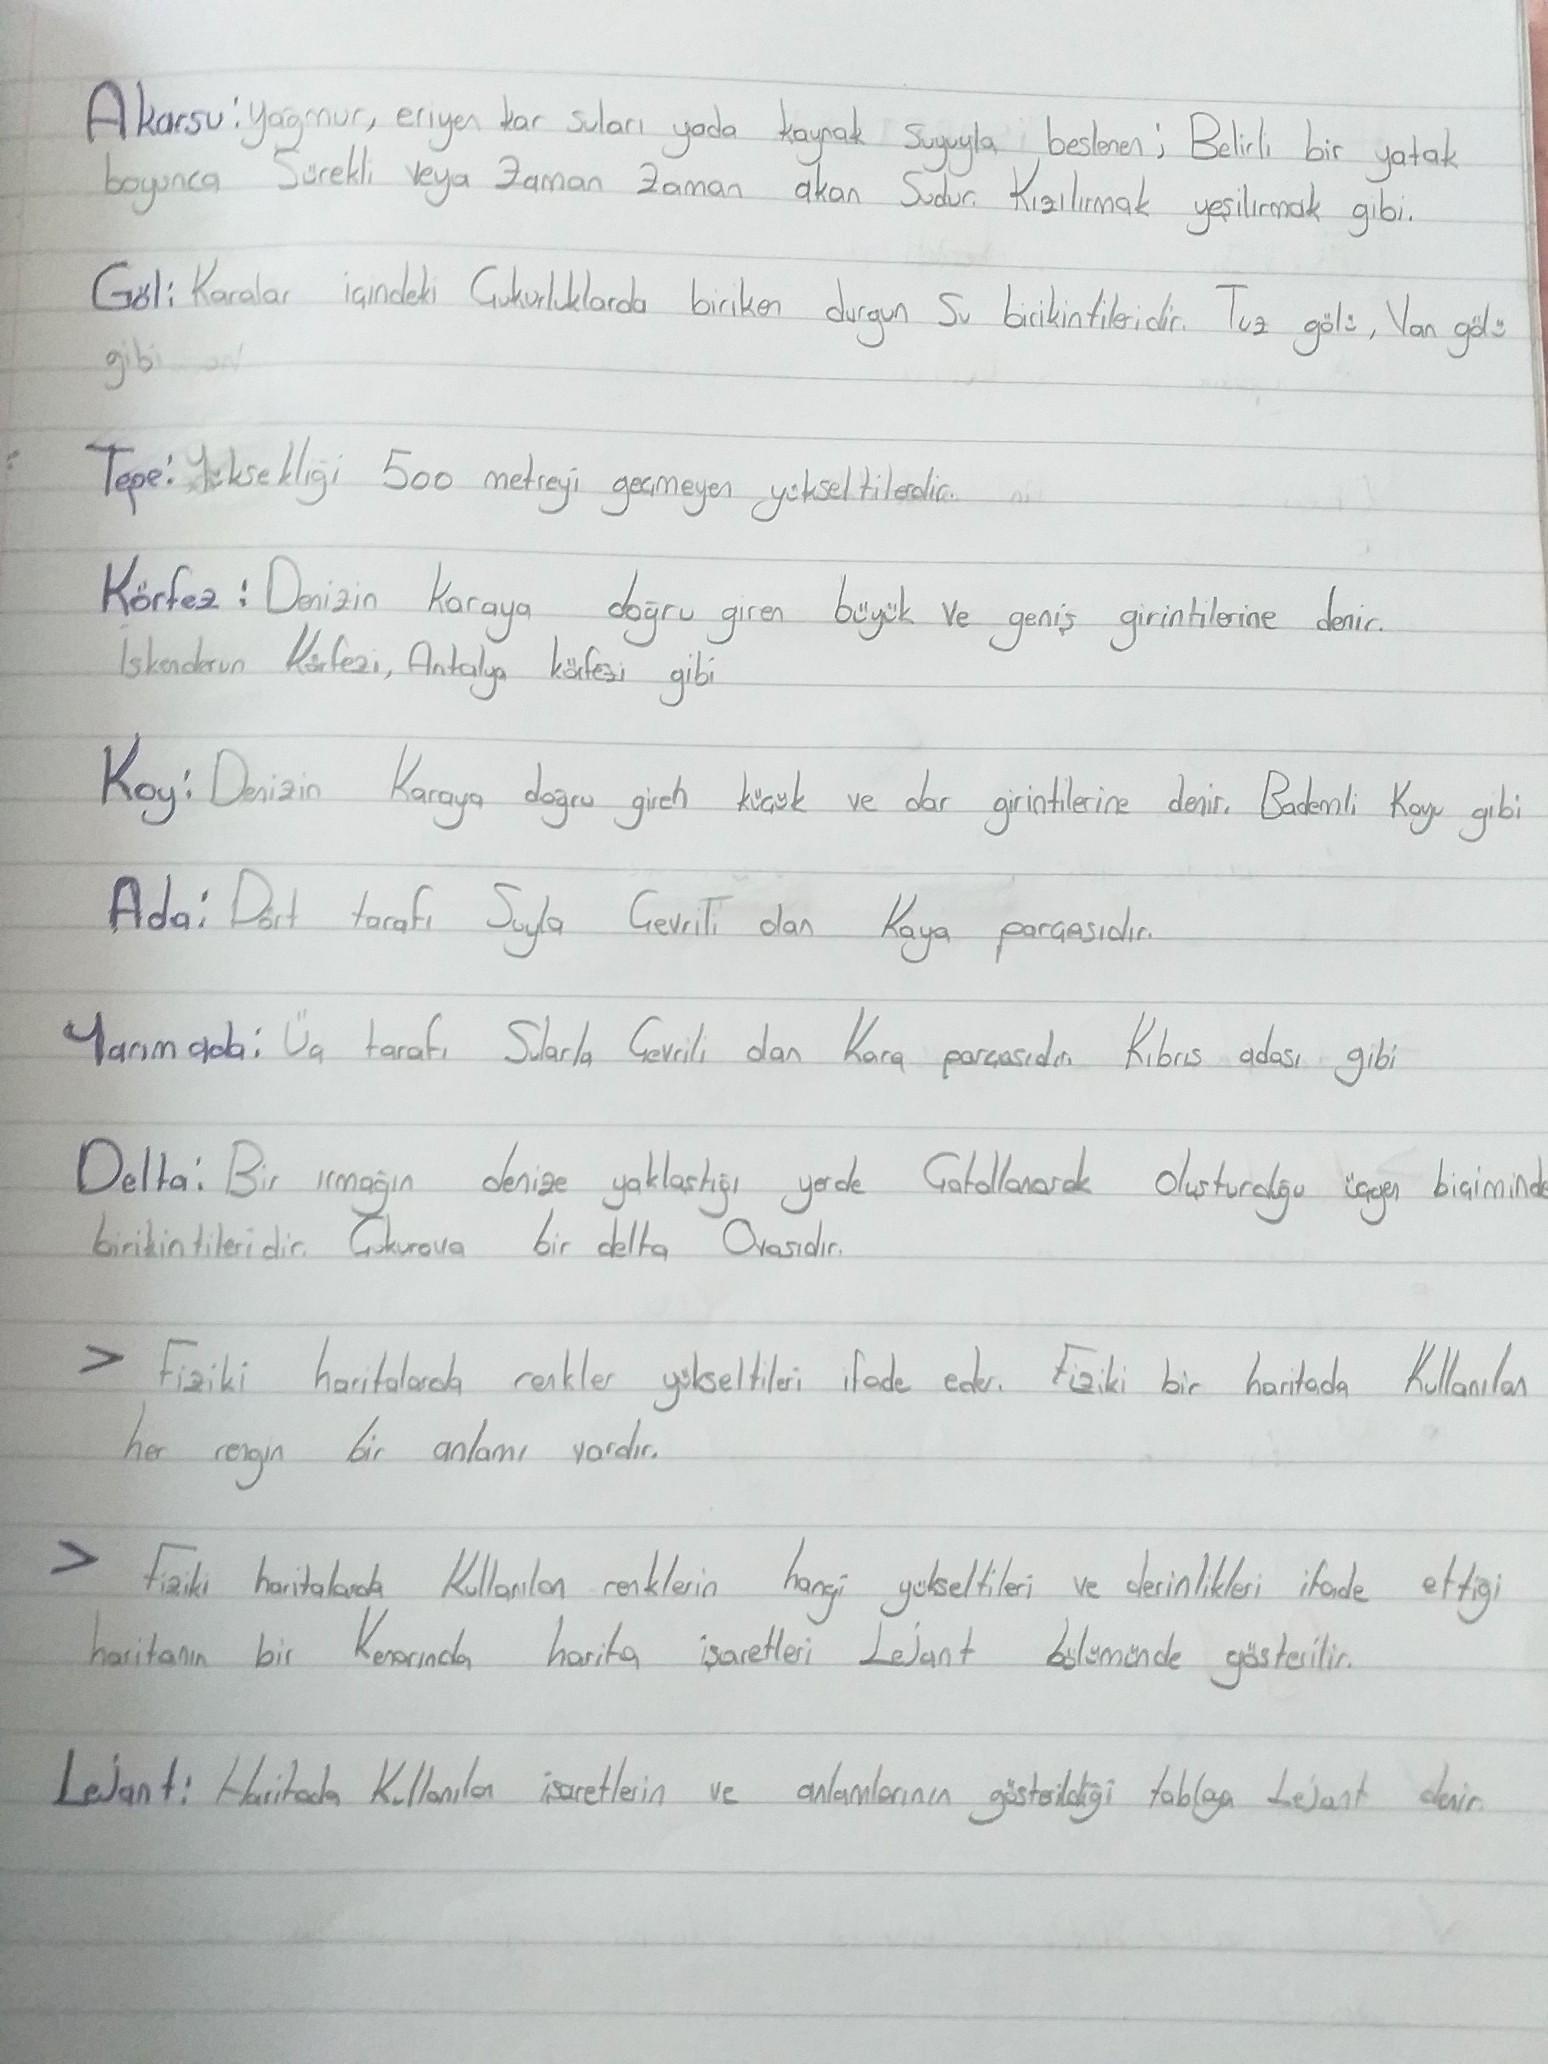 Akarsu: Yağmur, eriyen kar suları yada kaynak suyuyla beslenen; Belirli bir yatak
boyunca Sürekli veya Zaman Zaman akan Sudur. Kızılırmak yeşilırmak gibi.
Göl: Karalar içindeki Çukurluklarda biriken durgun Su birikintileridir. Tuz gölü, Van gölü
gibi
Tepe: Yüksekliği 500 metreyi geçmeyen yükseltilerdir.
Körfez: Denizin Karaya doğru giren büyük ve geniş girintilerine denir.
İskenderun Körfezi, Antalya körfezi gibi
Koy: Denizin Karaya doğru giren küçük ve dar girintilerine denir. Bademli Koyu gibi
Ada: Dört tarafı Suyla Çevrili olan Kaya parçasıdır.
Yarım ada: Üç tarafı Sularla Çevrili olan Kara parçasıdır. Kıbrıs adası gibi
Delta: Bir ırmağın denize yaklaştığı yerde Çatallanarak Oluşturduğu üçgen biçiminde
birikintileridir. Çukurova bir delta Ovasıdır.
> Fiziki haritalarda renkler yükseltileri ifade eder. Fiziki bir haritada Kullanılan
her rengin bir anlamı vardır.
> Fiziki haritalarda Kullanılan renklerin hangi yükseltileri ve derinlikleri ifade ettiği
haritanın bir Kenarında harita işaretleri Lejant bölümünde gösterilir.
Lejant: Haritada Kullanılan işaretlerin ve anlamlarının gösterildiği tabloya Lejant denir.